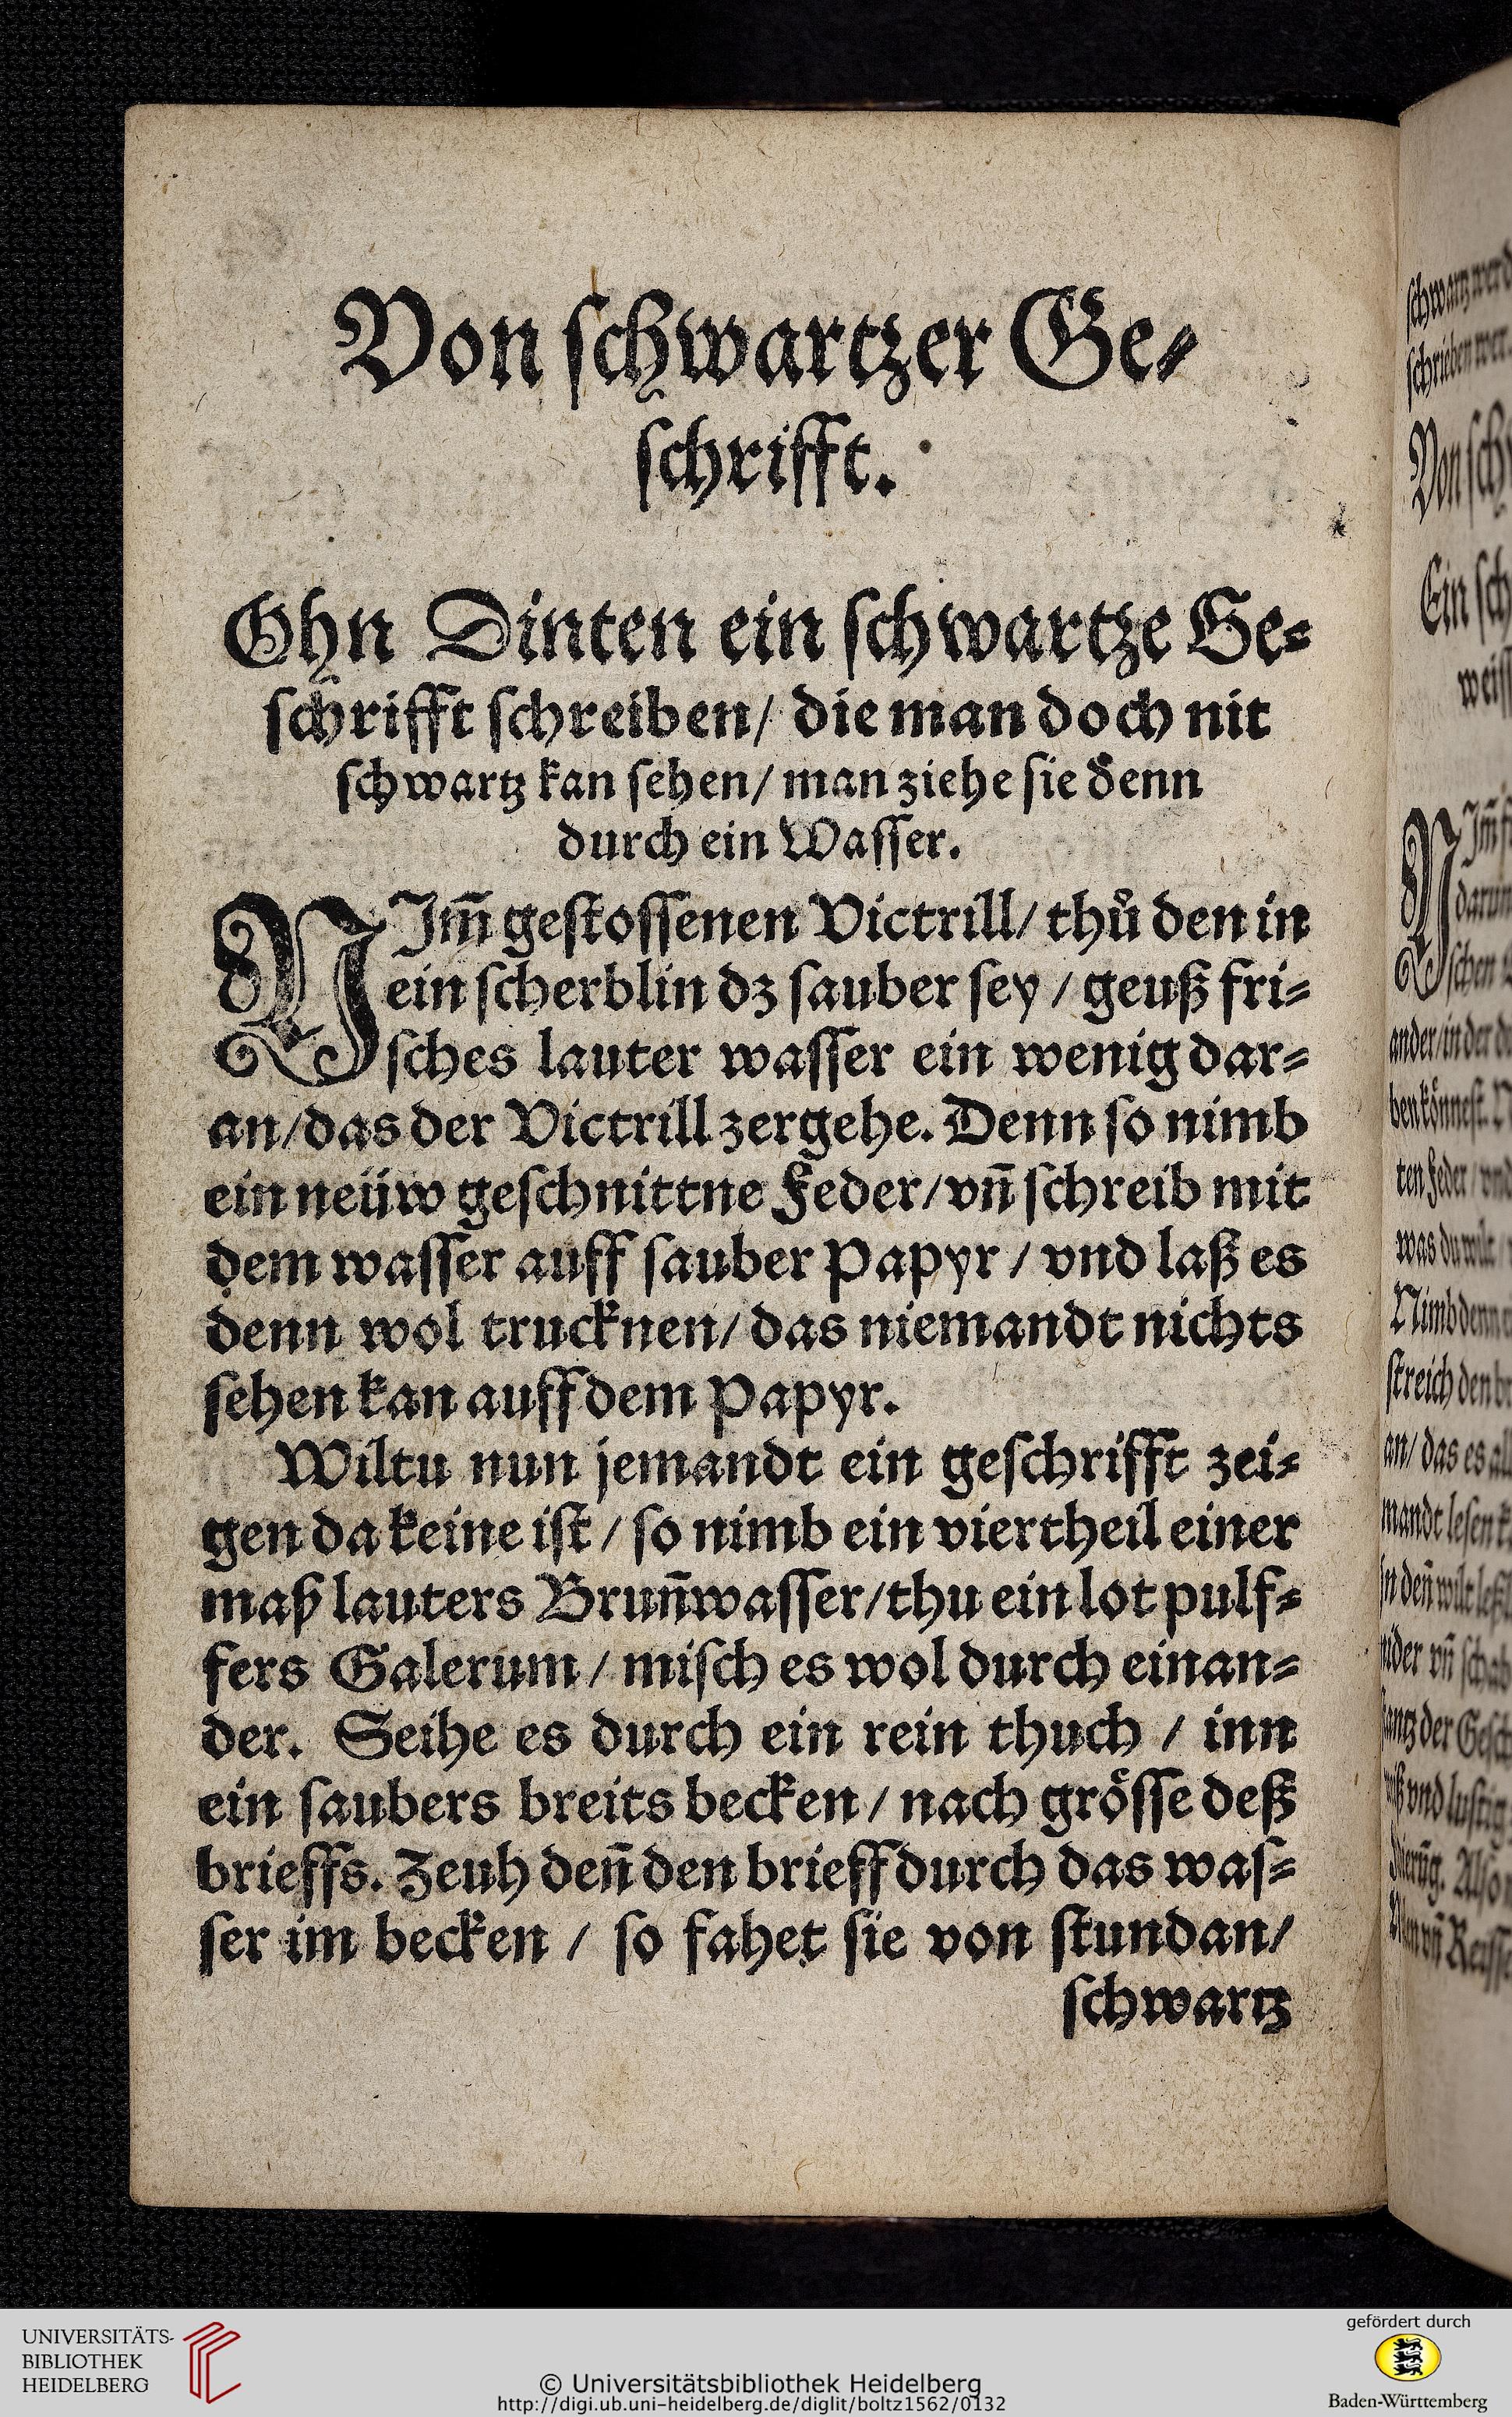 Von ſchwartzer Ge⸗
ſchrifft.
Ohn Dinten ein ſchwartze Ge⸗
ſchrifft ſchreiben/ die man doch nit
ſchwartz kan ſehen/ man ziehe ſie denn
durch ein Waſſer.
NIm̃ geſtoſſenen Victrill/ thuͦ den in
ein ſcherblin dz ſauber ſey / geuß fri⸗
ſches lauter waſſer ein wenig dar⸗
an/das der Victrill zergehe. Denn ſo nimb
ein neüw geſchnittne Feder/vñ ſchreib mit
dem waſſer auff ſauber Papyr / vnd laß es
denn wol trucknen/ das niemandt nichts
ſehen kan auff dem Papyr.
Wiltu nun jemandt ein geſchrifft zei⸗
gen da keine iſt / ſo nimb ein viertheil einer
maß lauters Brun̄waſſer/thu ein lot pulf⸗
fers Galerum / miſch es wol durch einan⸗
der. Seihe es durch ein rein thuch / inn
ein ſaubers breits becken / nach groͤſſe deß
brieffs. Zeuh den̄ den brieff durch das waſ⸗
ſer im becken / ſo fahet ſie von ſtundan/
ſchwartz
ſchrieben wer
Von ſch
Ein ſch
weiſſ
ander/in der
ben koͤnneſt.
ten Feder / vnd
was du wilt
Nimb denn
ſtreich den
an/ das es all
mandt leſen k
UNIVERSITÄTS-
BIBLIOTHEK
HEIDELBERG
© Universitätsbibliothek Heidelberg
http://digi.ub.uni-heidelberg.de/diglit/boltz1562/0132
gefördert durch
Baden-Württemberg